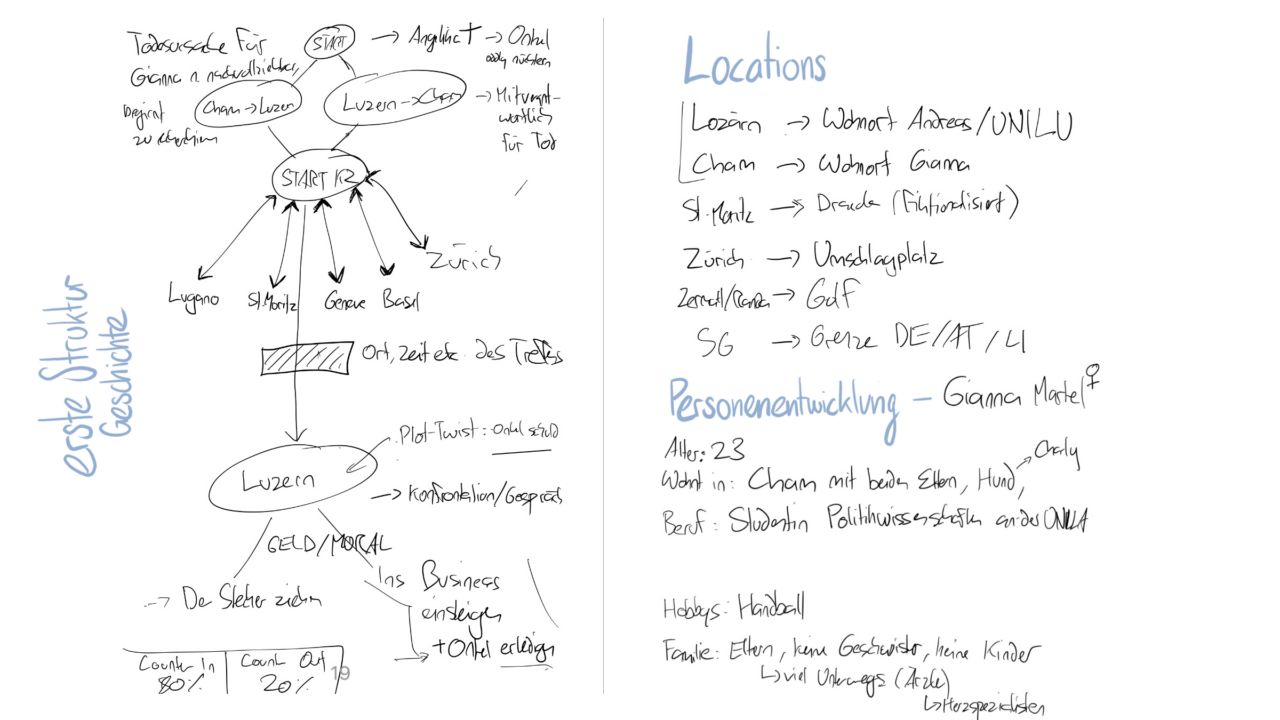 Todesursache für
Gianna n. nachvollziehbar,
beginnt
zu recherchieren
START
→ Angelina † → Onkel
Cham → Luzern
Luzern → Cham
→ Mitverant-
wortlich
für Tod
START K2
Lugano
St. Moritz
Geneve
Basel
Zürich
Ort, Zeit etc. des Treffens
erste Struktur
Geschichte
Plot-Twist: Onkel schuld
Luzern
→ Konfrontation/Gespräch
GELD/MORAL
→ De Stecker ziehn
Ins Business
einsteigen
+ Onkel erledigen
Counter In
80%
Count Out
20%
19
Locations
Lozärn → Wohnort Andreas/UNILU
Cham → Wohnort Gianna
St. Moritz → (Fiktionalisiert)
Zürich → Umschlagplatz
Zermatt/Randa → GdF
SG → Grenze DE/AT/LI
Personenentwicklung – Gianna Martel ♀
Alter: 23
Charly
Wohnt in: Cham mit beiden Eltern, Hund,
Beruf: Studentin Politikwissenschaften an der
Hobbys: Handball
Familie: Eltern, keine Geschwister, keine Kinder
↳ viel Unterwegs (Ärzte)
↳ Herzspezialisten